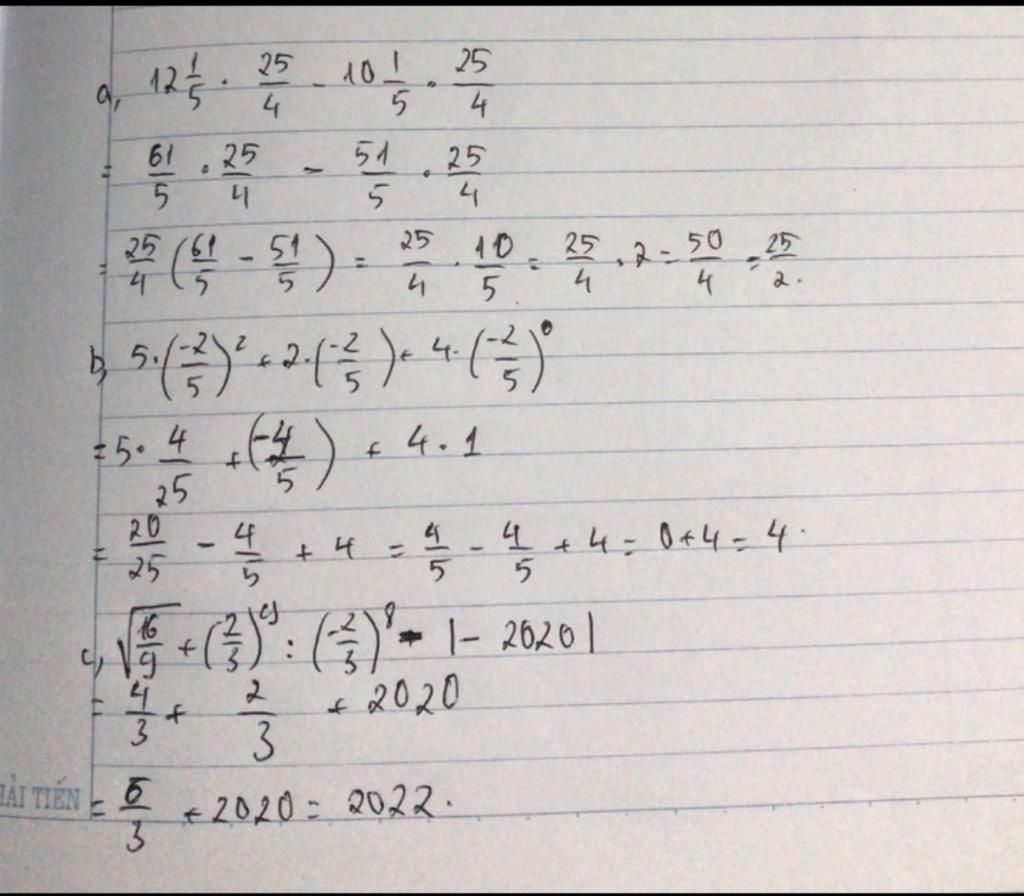 a, 12 1/5 · 25/4 - 10 1/5 · 25/4
= 61/5 · 25/4 - 51/5 · 25/4
= 25/4 (61/5 - 51/5) = 25/4 · 10/5 = 25/4 · 2 = 50/4 = 25/2.
b, 5·(-2/5)² + 2·(-2/5) + 4·(-2/5)⁰
= 5· 4/25 + (-4/5) + 4·1
= 20/25 - 4/5 + 4 = 4/5 - 4/5 + 4 = 0+4 = 4.
c, √(16/9) + (2/3)⁹ : (-2/3)⁸ - |- 2020|
= 4/3 + 2/3 + 2020
HẢI TIẾN
= 6/3 + 2020 = 2022.